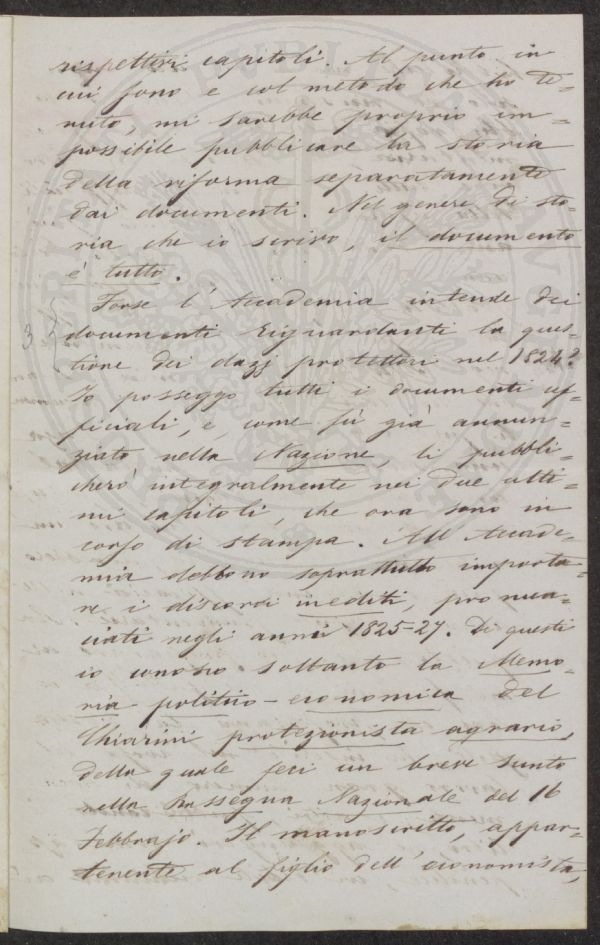 rispettivi capitoli. Al punto in
cui sono e col metodo che ho te=
nuto, mi sarebbe proprio im=
possibile pubblicare la storia
della riforma separatamente
dai documenti. Nel genere di sto=
ria che io scrivo, il documento
è tutto.
Forse l'Accademia intende dei
documenti riguardanti la ques=
tione dei dazj protettori nel 1824?
Io posseggo tutti i documenti uf=
ficiali, e, come fù già annun=
ziato nella Nazione, li pubbli=
cherò integralmente nei due ulti=
mi capitoli, che ora sono in
corso di stampa. All'Accade=
mia debbono soprattutto importa=
re i discorsi inediti, pronun=
ciati negli anni 1825-27. Di questi
io conosco soltanto la Memo=
ria politico-economica del
Chiarini protezionista agrario,
della quale feci un breve sunto
nella Rassegna Nazionale del 16
Febbrajo. Il manoscritto, appar=
tenente al figlio dell'economista,